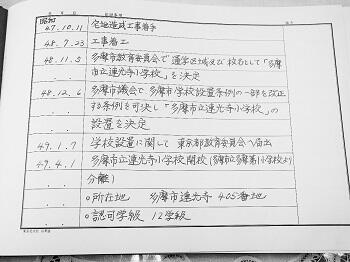 昭和
47.10.11 宅地造成工事着手
48.7.23 工事着工
48.11.5 多摩市教育委員会で通学区域及び校名として「多摩
市立連光寺小学校」を決定
48.12.6 多摩市議会で多摩市学校設置条例の一部を改正
する条例を可決し「多摩市立連光寺小学校」の
設置を決定
49.1.7 学校設置に関して東京都教育委員会へ届出
49.4.1 多摩市立連光寺小学校開校(多摩市立多摩第1小学校より
分離)
○所在地 多摩市連光寺405番地
○認可学級 12学級